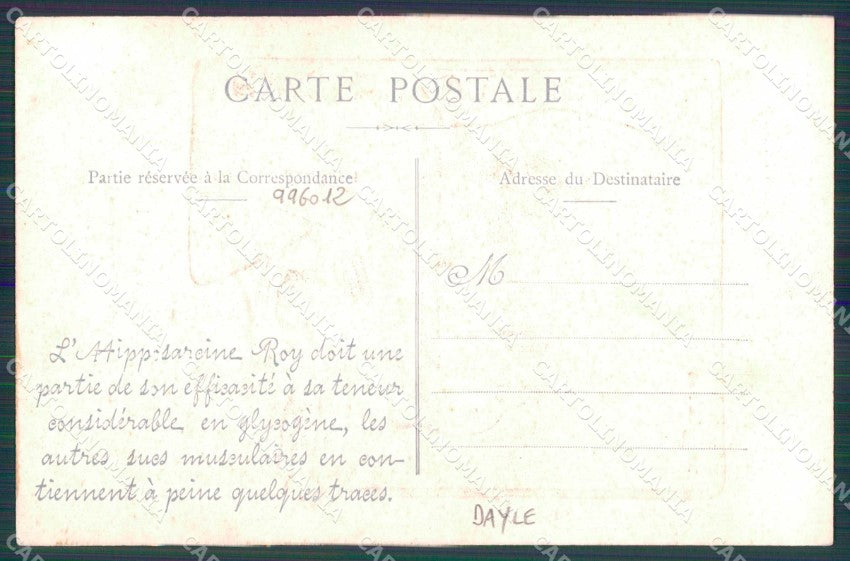 CARTE POSTALE
Partie réservée à la Correspondance
996012
Adresse du Destinataire
M
L'Hipposarcine Roy doit une
partie de son efficacité à sa teneur
considérable en glycogène, les
autres sucs musculaires en con-
tiennent à peine quelques traces.
DAYLE
CARTOLINOMANIA